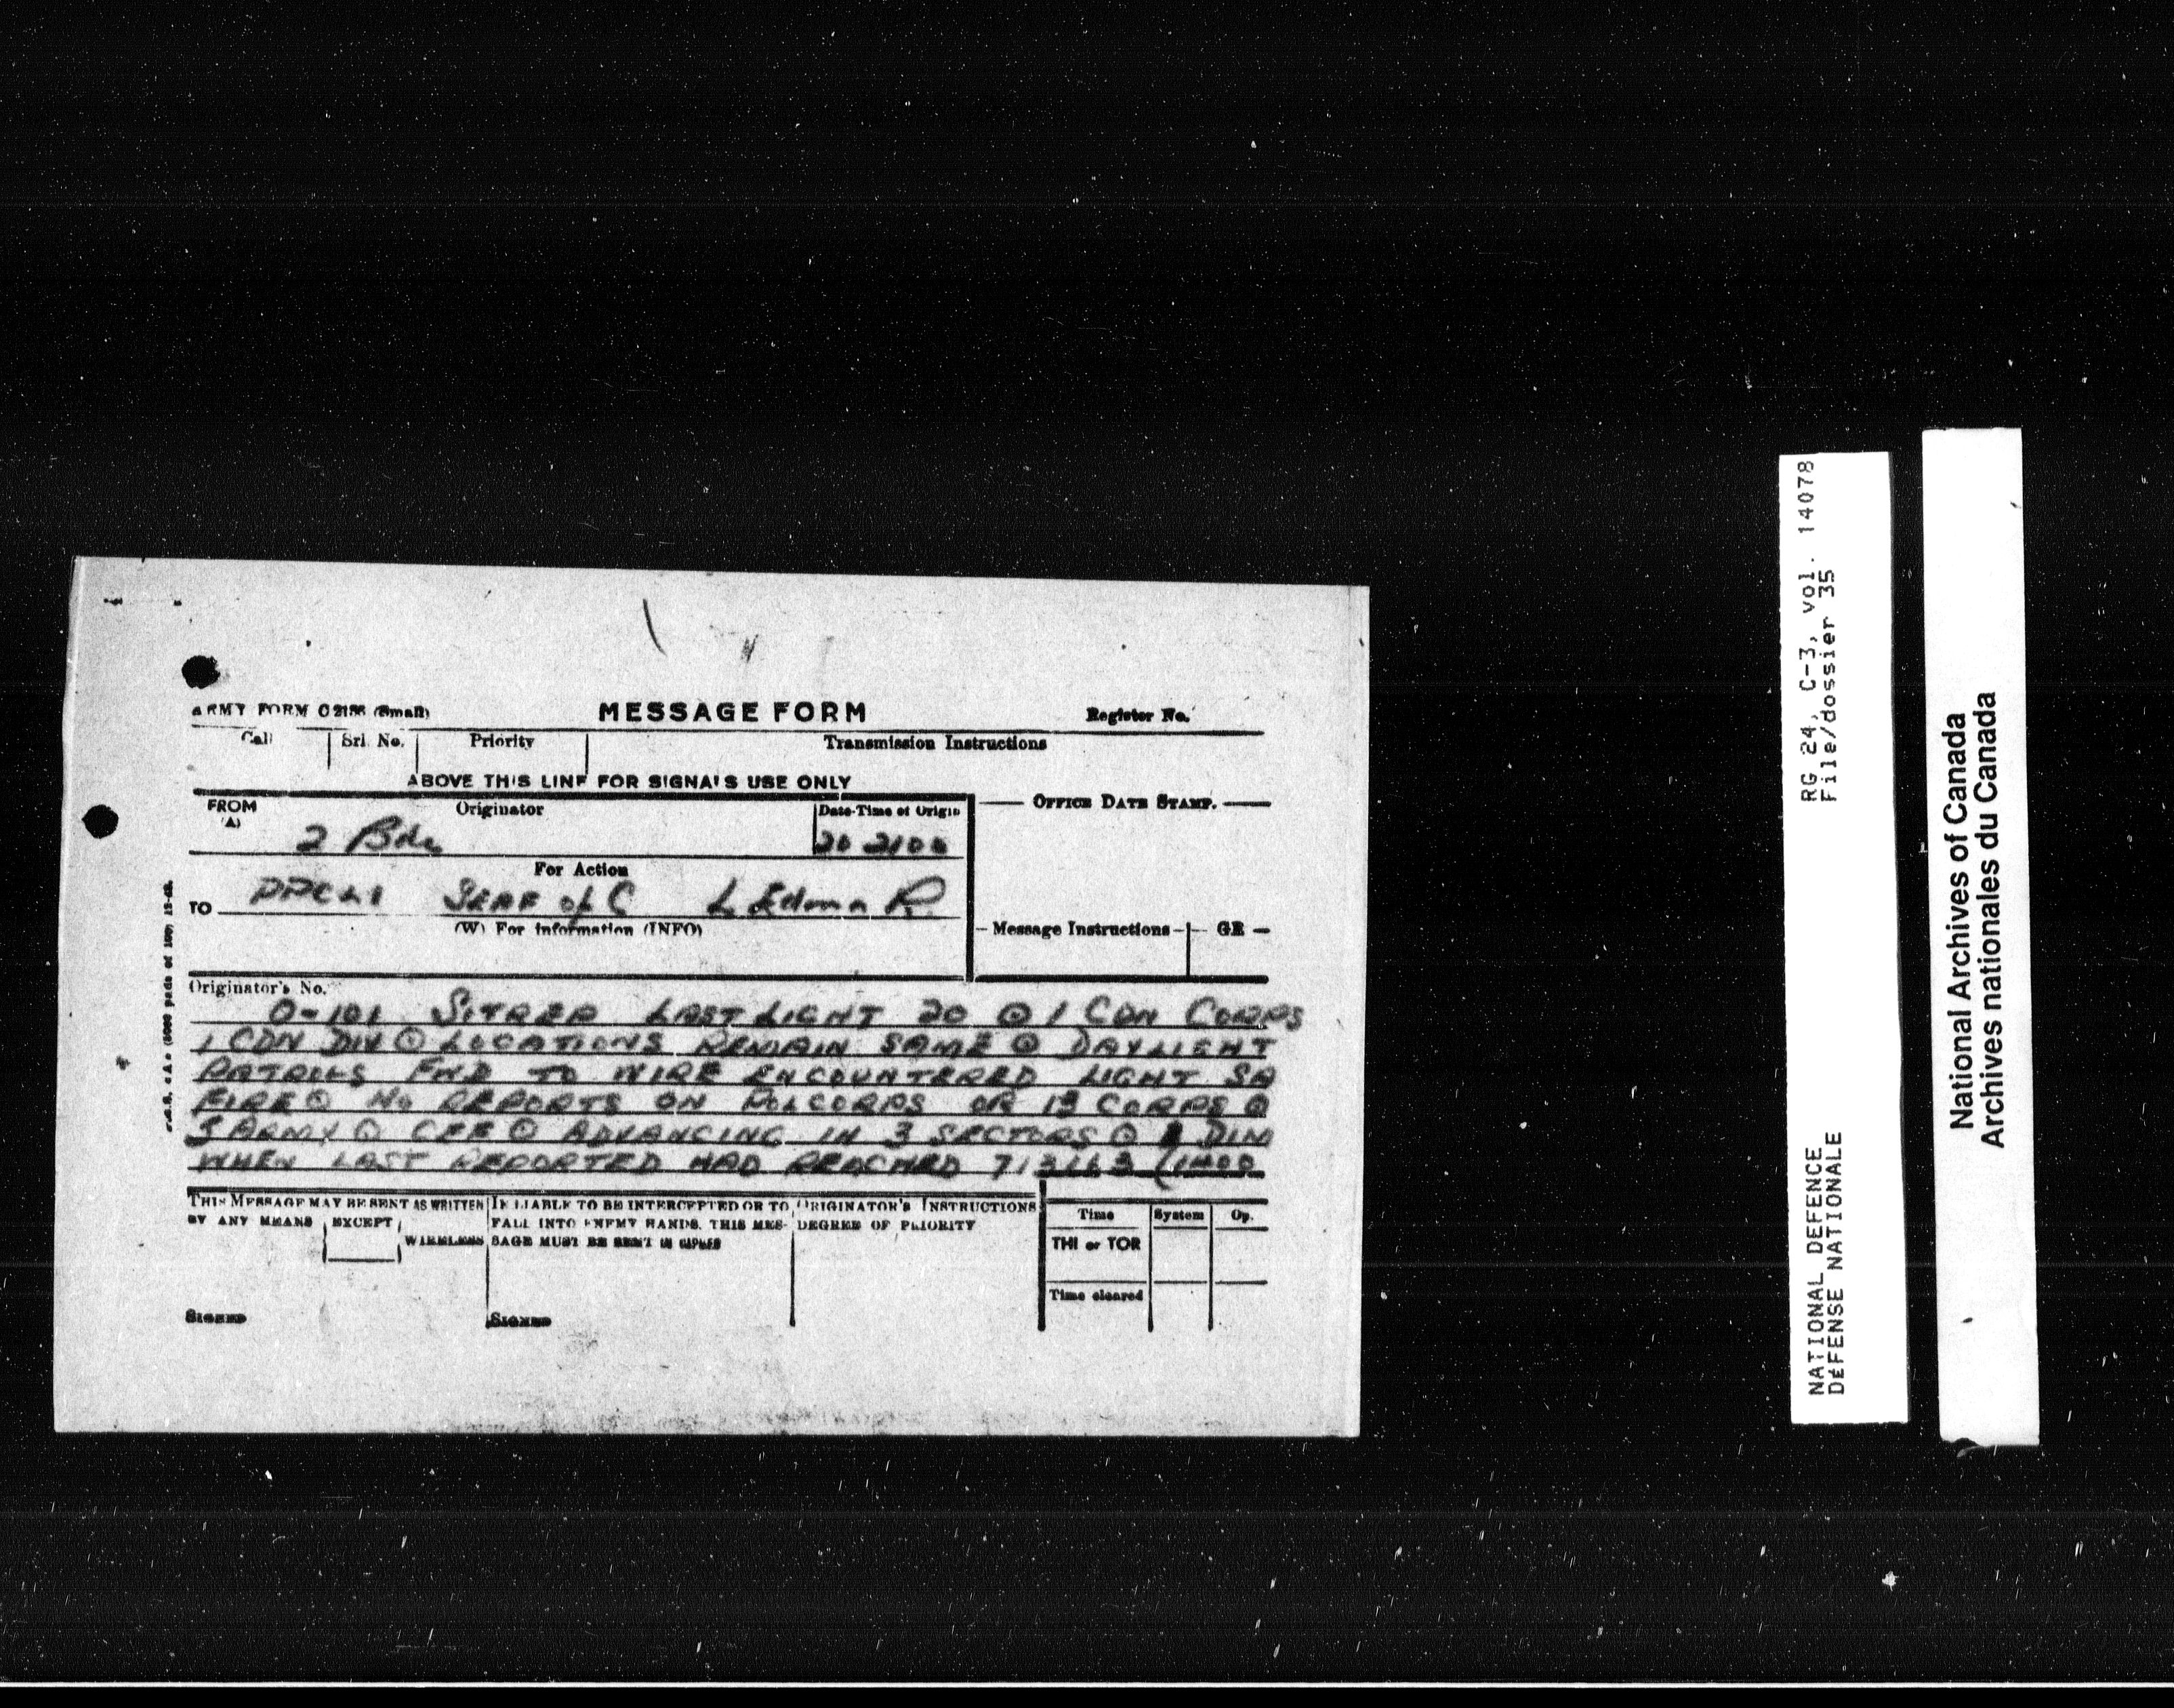 ARMY FORM C2136 (Small)
MESSAGE FORM
Register No.
Call
Srl. No.
Priority
Transmission Instructions
ABOVE THIS LINE FOR SIGNALS USE ONLY
FROM (A)
Originator
Date-Time of Origin
OFFICE DATE STAMP.
2 Bde
20 2100
For Action
TO PPCLI SEAF of C L Edmn R
(W) For Information (INFO)
Message Instructions
GR
Originator's No.
O-101 SITREP LAST LIGHT 20 ⊙ 1 CDN CORPS
1 CDN DIV ⊙ LOCATIONS REMAIN SAME ⊙ DAYLIGHT
PATROLS FWD TO WIRE ENCOUNTERED LIGHT SA
FIRE ⊙ NO REPORTS ON POLCORPS OR 13 CORPS ⊙
5 ARMY ⊙ CEF ⊙ ADVANCING IN 3 SECTORS ⊙ DIV
WHEN LAST REPORTED HAD REACHED 713163 (1400
THIS MESSAGE MAY BE SENT AS WRITTEN
BY ANY MEANS EXCEPT
WIRELESS
SIGNED
IF LIABLE TO BE INTERCEPTED OR TO
FALL INTO ENEMY HANDS. THIS MES-
SAGE MUST BE SENT IN CIPHER
SIGNED
ORIGINATOR'S INSTRUCTIONS
DEGREE OF PRIORITY
Time
System
Op.
THI or TOR
Time cleared
RG 24, C-3, vol. 14078
File/dossier 35
NATIONAL DEFENCE
DEFENSE NATIONALE
National Archives of Canada
Archives nationales du Canada